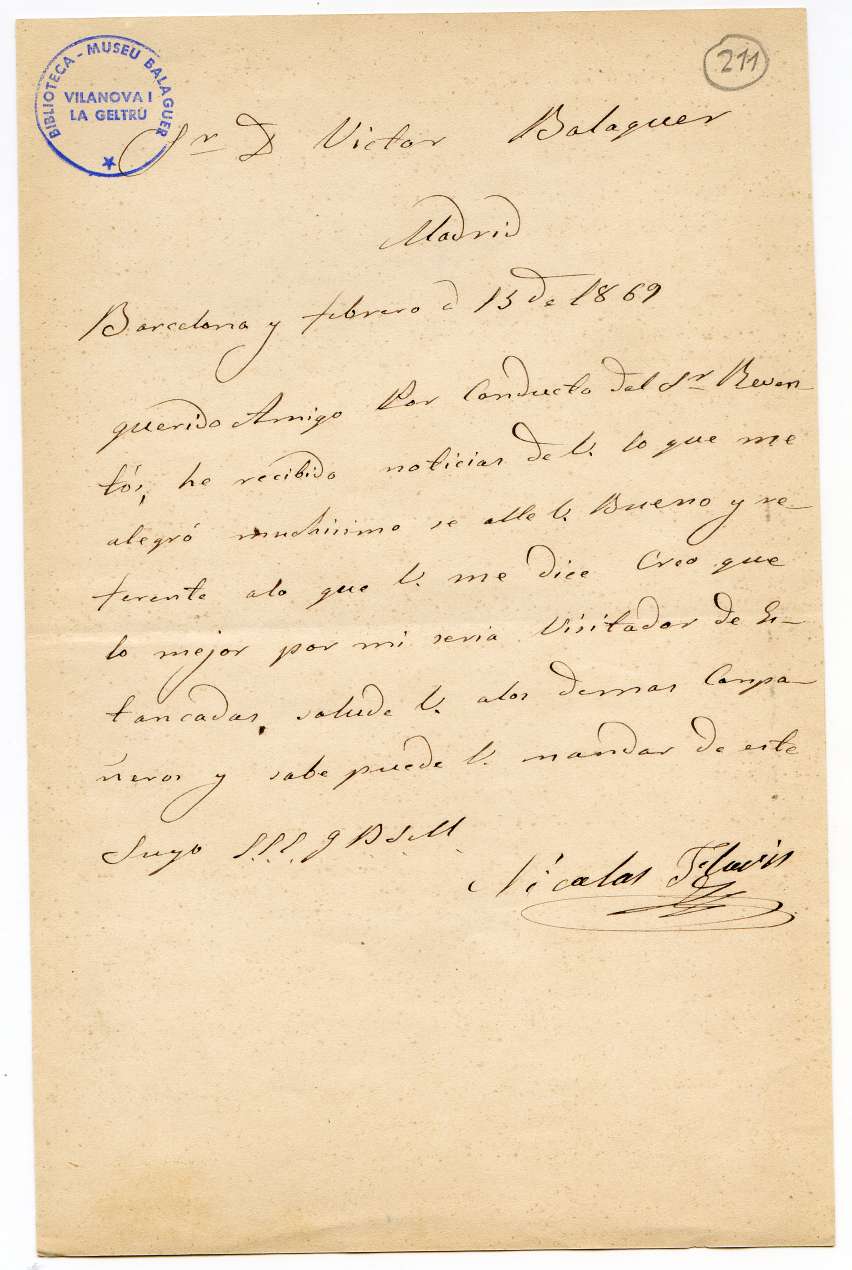 BIBLIOTECA - MUSEU BALAGUER
VILANOVA I
LA GELTRÚ
211
Sr D Victor Balaguer
Madrid
Barcelona y febrero d 13 de 1869
querido Amigo Por Conducto del Sr Reven-
tós, he recibido noticias de V. lo que me
alegró muchisimo se alle V. Bueno y re-
ferente alo que V. me dice Creo que
lo mejor por mi seria Visitador de Es-
tancadas, salude V. alos demas Conpa-
ñeros y sabe puede V. mandar de este
Suyo S.S.S. q B S M
Nicolas